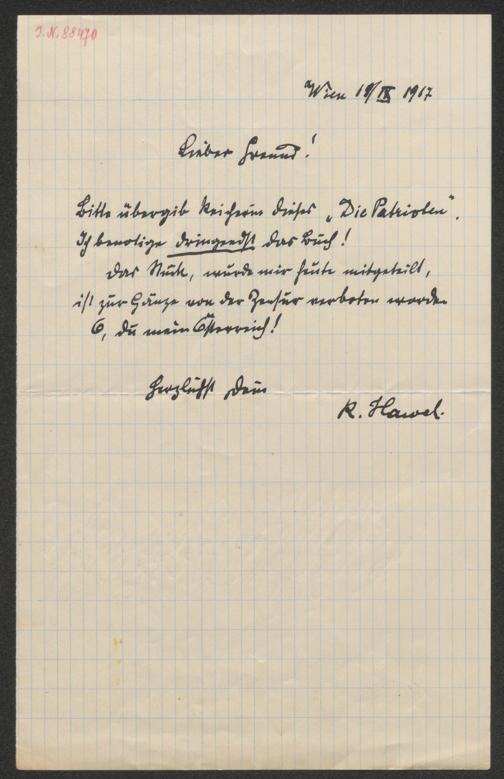 I.N. 88470
Wien 18/IX 1917
Lieber Freund!
Bitte übergib Überbringerin dieses „Die Patrioten“.
Ich benötige dringendst das Buch!
Das Stück, wurde mir heute mitgeteilt,
ist zur Gänze von der Zensur verboten worden
O, du mein Österreich!
Herzlichst Dein
R. Hawel.